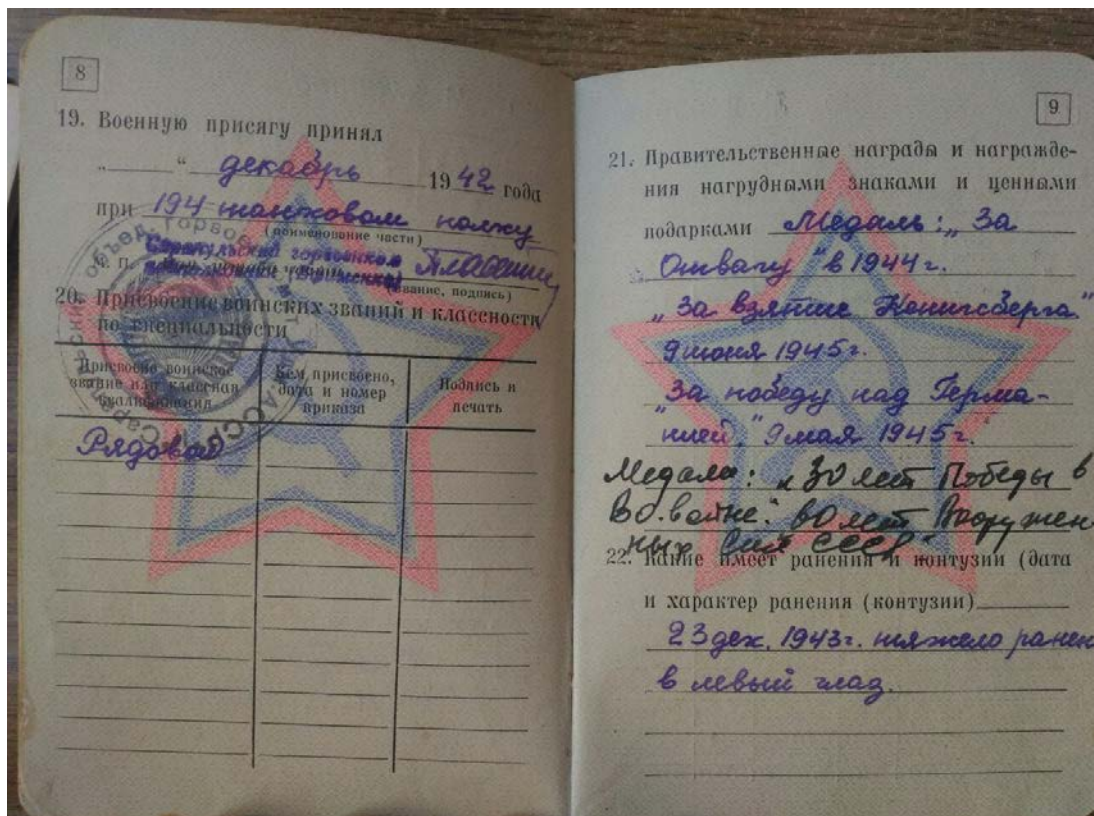 8
19. Военную присягу принял
„ “ декабрь 1942 года
при 194 танковом полку
(наименование части)
Сарапульский горвоенком
М. П.
(звание, подпись)
20. Присвоение воинских званий и классности
по специальности
Присвоено воинское звание или классная квалификация
Кем присвоено, дата и номер приказа
Подпись и печать
Рядовой
9
21. Правительственные награды и награжде-
ния нагрудными знаками и ценными
подарками Медаль: „За
Отвагу" в 1944 г.
„За взятие Кенигсберга"
9 июня 1945 г.
„За победу над Герма-
нией" 9 мая 1945 г.
Медали: „30 лет Победы в
В.О. войне." 60 лет Вооружен-
ных Сил СССР"
22. Какие имеет ранения и контузии (дата
и характер ранения (контузии)
23 дек. 1943 г. тяжело ранен
в левый глаз.